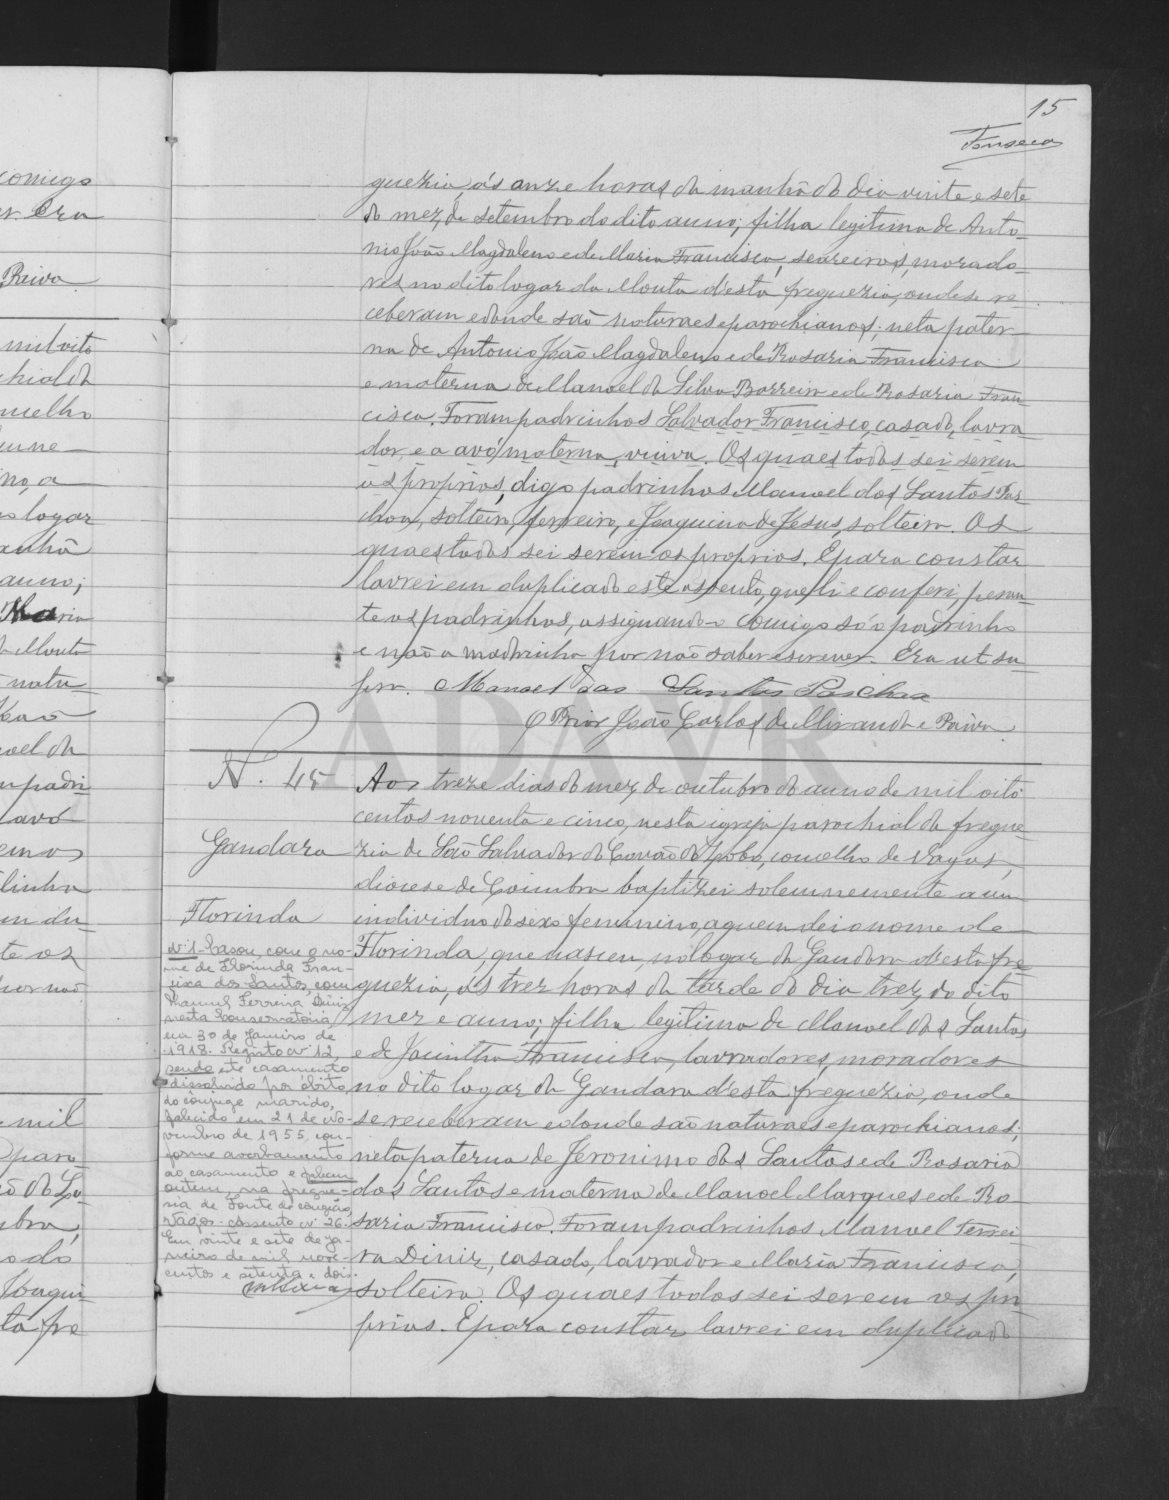 comigo
Era
Paiva
mil oito
concelho
a
logar
manhã
anno;
Maria
da Mouta
natu-
João
noel da
padri
avó
linha
em du-
te os
por não
mil
para
o do
Joaqui-
ta fre
15
Fonseca
guezia, ás onze horas da manhã do dia vinte e sete
do mez de setembro do dito anno; filha legitima de Anto-
nio João Magdaleno e de Maria Francisca, seareiros, morado-
res no dito logar da Mouta d'esta freguezia, onde se re-
ceberam e donde são naturaes e parochianos; neta pater-
na de Antonio João Magdaleno e de Rosaria Francisca
e materna de Manoel da Silva Barreiro e de Rosaria Fran-
cisca. Foram padrinhos Salvador Francisco, casado, lavra-
dor, e a avó materna, viuva. Os quaes todos sei serem
os proprios, digo padrinhos Manoel dos Santos Pas-
choa, solteiro, ferreiro, e Joaquina de Jesus, solteira. Os
quaes todos sei serem os proprios. E para constar
lavrei em duplicado este assento, que li e conferi, peran-
te os padrinhos, assignando-o comigo só o padrinho
e não a madrinha por não saber escrever. Era ut su-
pra. Manoel dos Santos Paschoa
O Prior João Carlos de Miranda e Paiva
ADAVR
N. 45
Gandara
Florinda
Nº 1 - Casou com o no-
me de Florinda Fran-
cisca dos Santos, com
Manuel Ferreira Diniz
nesta Conservatória
em 30 de Janeiro de
1918. Registo nº 12,
sendo este casamento
dissolvido por óbito
do conjuge marido,
falecido em 21 de No-
vembro de 1955, con-
forme averbamento
ao casamento e
ontem, na fregue-
sia de Fonte de Angião,
Vagos. Assento nº 26.
Em vinte e sete de Ja-
neiro de mil nove-
centos e setenta e dois.
Aos treze dias do mez de outubro do anno de mil oito
centos noventa e cinco, nesta igreja parochial da fregue-
zia de São Salvador do Covão do Lobo, concelho de Vagos,
diocese de Coimbra baptizei solemnemente a um
individuo do sexo femenino, a quem dei o nome de
Florinda, que nasceu, no logar da Gandara d'esta fre-
guezia, ás trez horas da tarde do dia trez do dito
mez e anno; filha legitima de Manoel dos Santos
e de Jacintha Francisca, lavradores, moradores
no dito logar da Gandara d'esta freguezia, onde
se receberam e donde são naturaes e parochianos;
neta paterna de Jeronimo dos Santos e de Rosaria
dos Santos e materna de Manoel Marques e de Ro-
saria Francisca. Foram padrinhos Manoel Ferrei-
ra Diniz, casado, lavrador e Maria Francisca,
solteira. Os quaes todos sei serem os pro-
prios. E para constar lavrei em duplicado